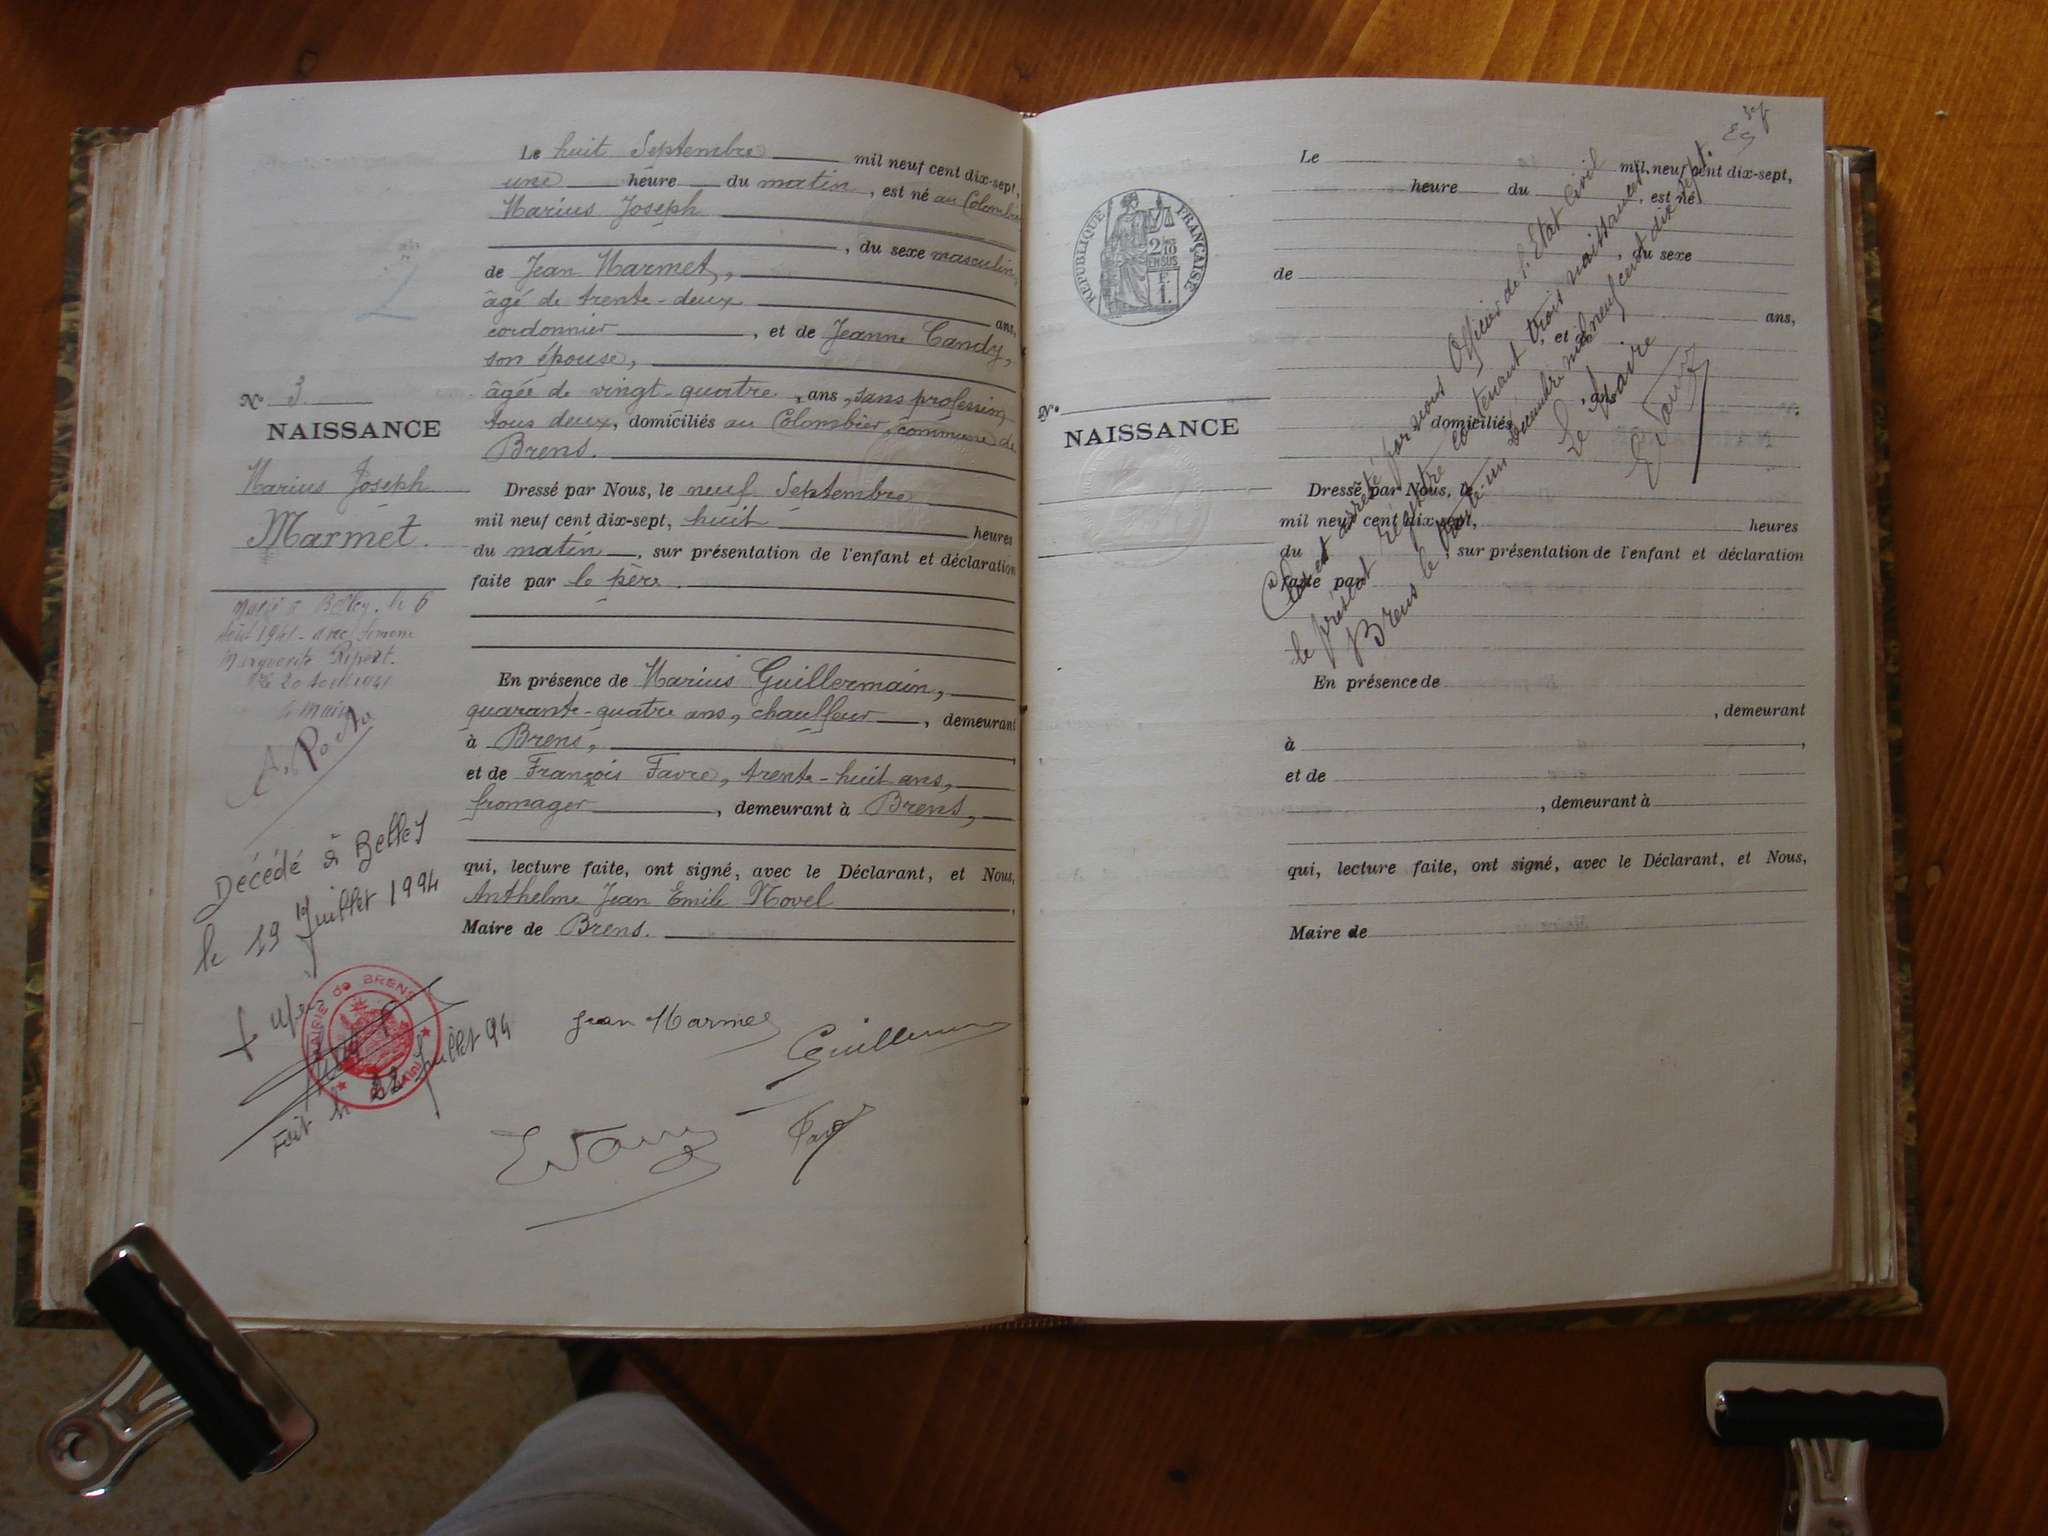 Le huit Septembre mil neuf cent dix-sept,
une heure du matin, est né au Colombier
Marius Joseph
, du sexe masculin,
de Jean Marmet,
âgé de trente-deux ans,
cordonnier, et de Jeanne Candy,
son épouse,
âgée de vingt-quatre, ans, sans profession
tous deux, domiciliés au Colombier, commune de
Brens.
Dressé par Nous, le neuf Septembre
mil neuf cent dix-sept, huit heures
du matin, sur présentation de l'enfant et déclaration
faite par le père.
En présence de Marius Guillermain,
quarante-quatre ans, chauffeur, demeurant
à Brens,
et de François Favre, trente-huit ans,
fromager, demeurant à Brens,
qui, lecture faite, ont signé, avec le Déclarant, et Nous,
Anthelme Jean Emile Novel,
Maire de Brens.
Jean Marmet
Guillermain
Favre
2
N° 3
NAISSANCE
Marius Joseph
Marmet.
Marié à Belley, le 6
Août 1941 - avec Simone
Marguerite Ripert.
Le 20 Août 1941
Le Maire
Décédé à Belley
le 19 Juillet 1994
MAIRIE de BRENS
Fait le 22 Juillet 94
REPUBLIQUE FRANÇAISE
2/10 EN SUS
F
1.
N°
NAISSANCE
Le mil neuf cent dix-sept,
heure du , est né
, du sexe
de
ans,
, et de
, ans,
domiciliés
Dressé par Nous, le
mil neuf cent dix-sept, heures
du , sur présentation de l'enfant et déclaration
faite par
En présence de
, demeurant
à ,
et de
, demeurant à
qui, lecture faite, ont signé, avec le Déclarant, et Nous,
Maire de
Clos et arrêté par nous Officier de l'Etat Civil
le présent Régistre contenant trois naissances
Brens le trente-un Décembre mil neuf cent dix sept.
Le Maire